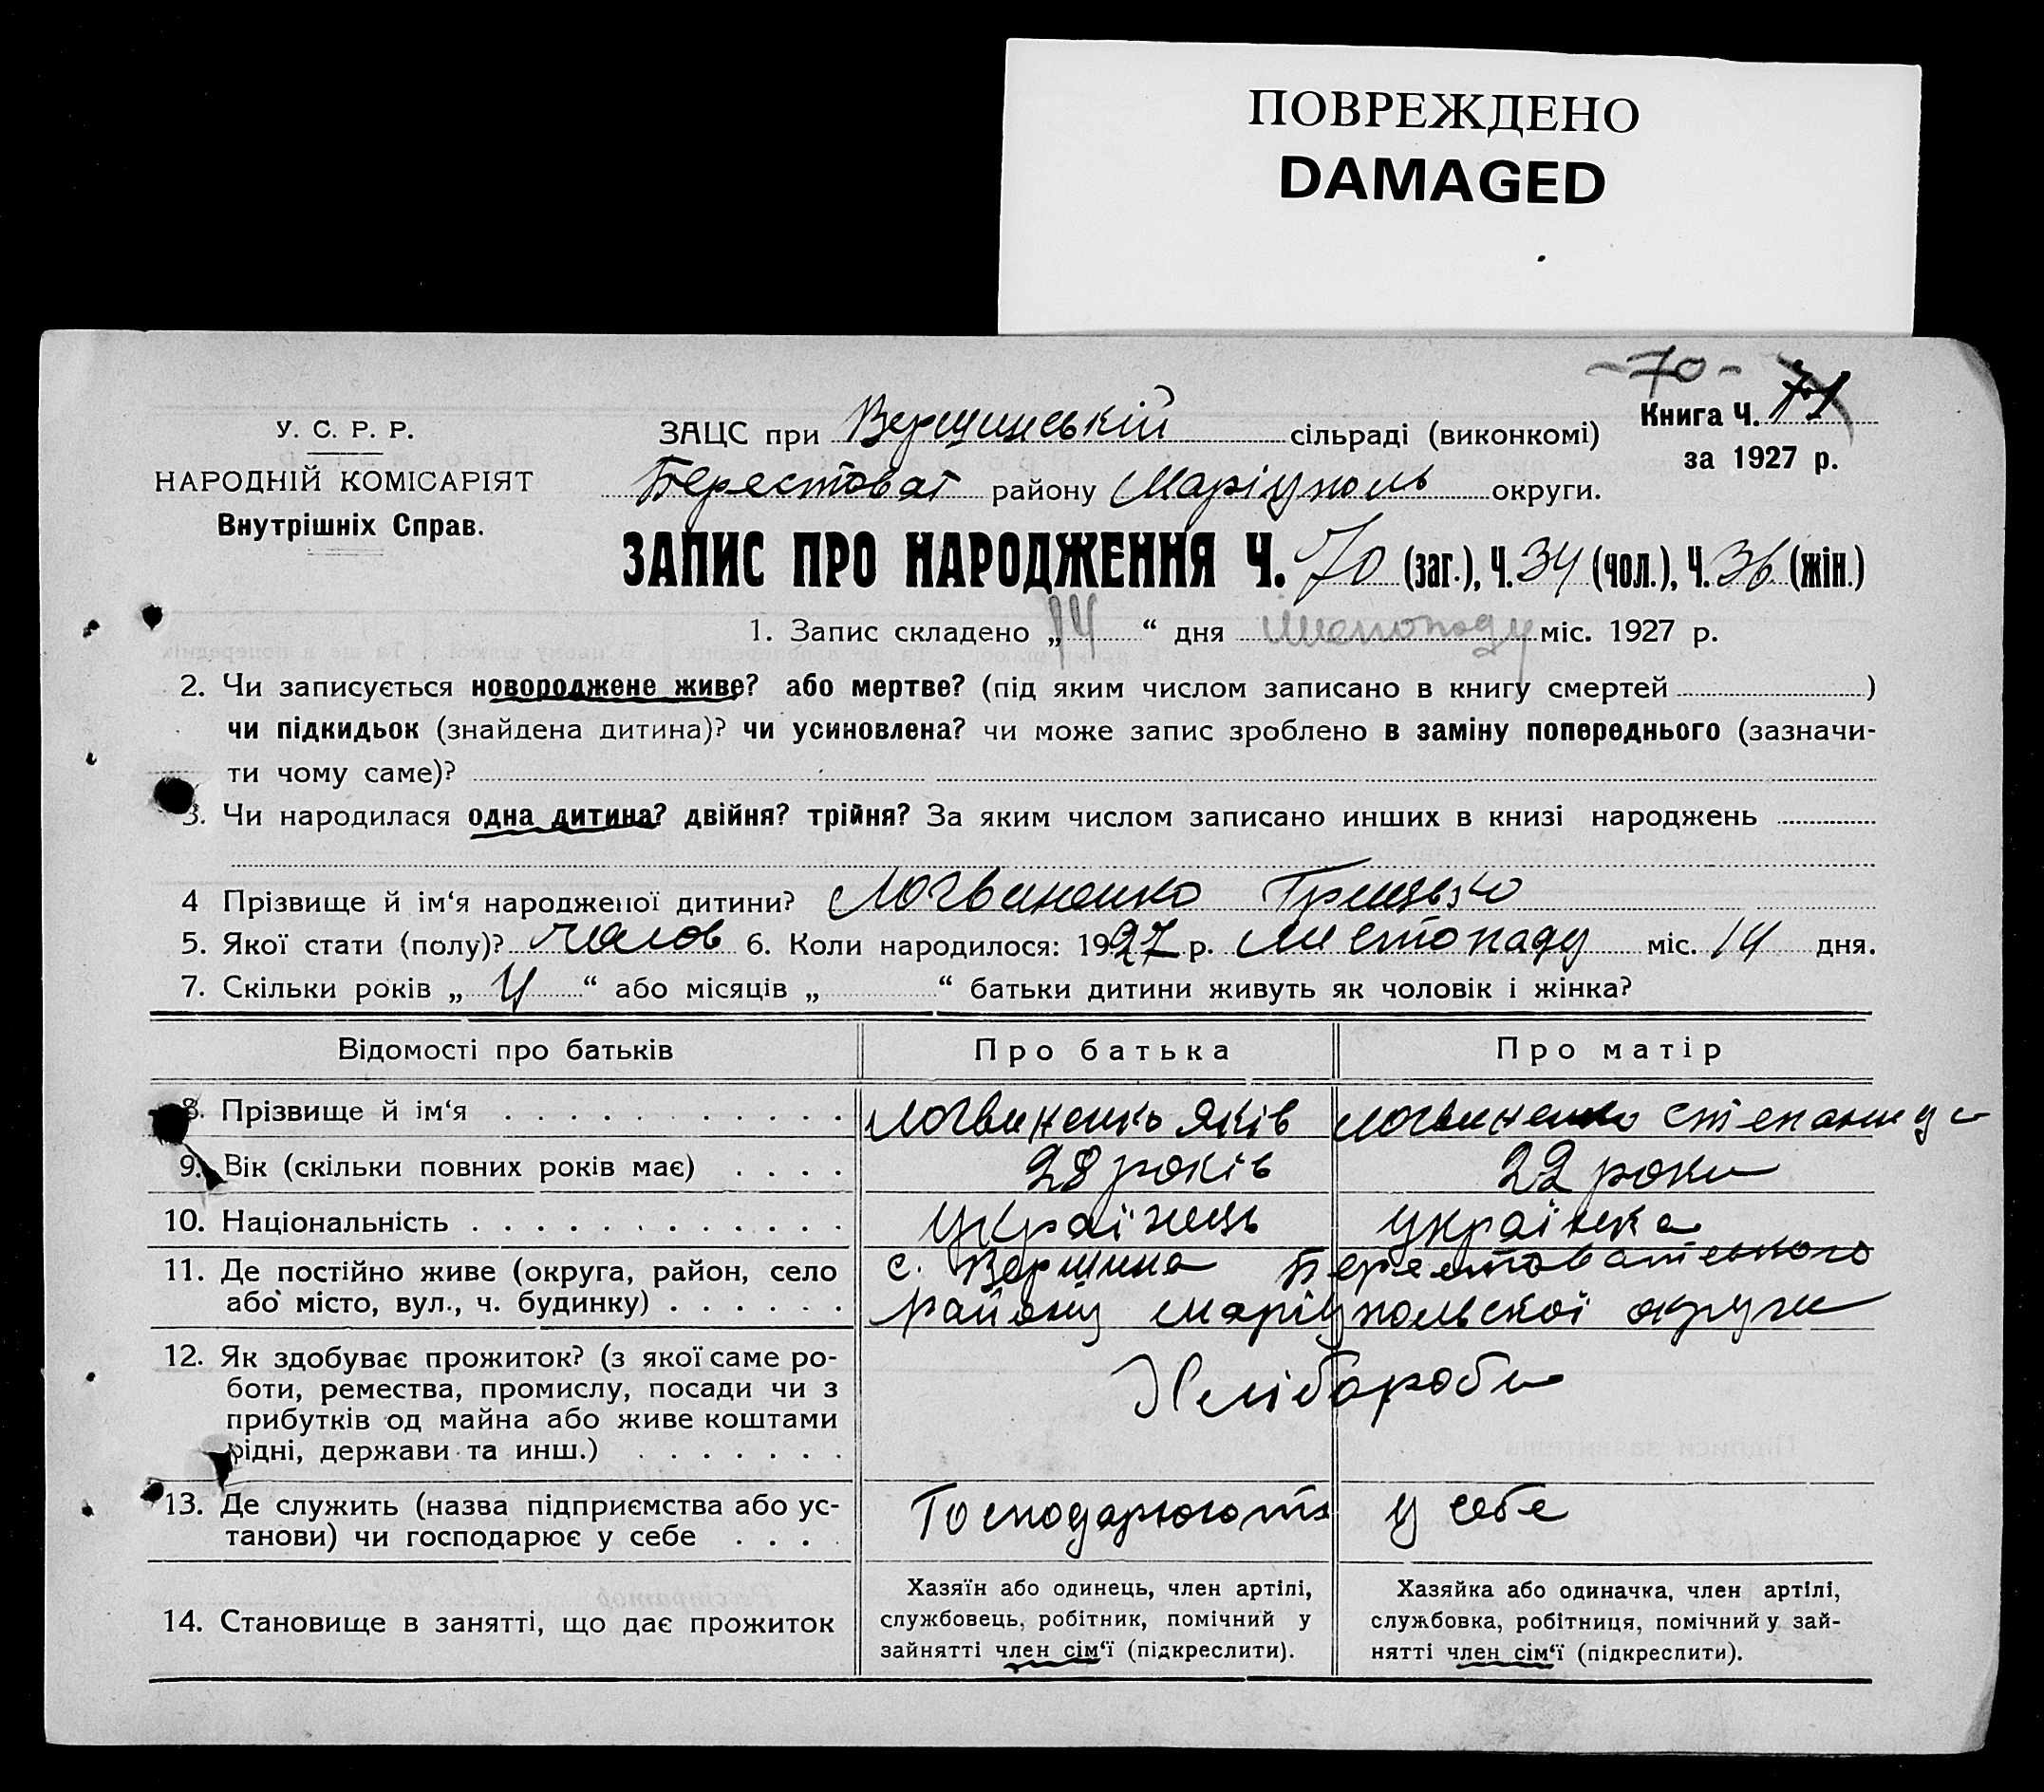 ПОВРЕЖДЕНО
DAMAGED
-70-
Книга Ч. 71
за 1927 р.
У. С. Р. Р.
НАРОДНІЙ КОМІСАРІЯТ
Внутрішніх Справ.
ЗАЦС при Вершинській сільраді (виконкомі)
Берестоват району Маріуполь округи.
ЗАПИС ПРО НАРОДЖЕННЯ Ч. 70 (заг.), Ч. 34 (чол.), Ч. 36 (жін.)
1. Запис складено „14“ дня листопаду міс. 1927 р.
2. Чи записується новороджене живе? або мертве? (під яким числом записано в книгу смертей )
чи підкидьок (знайдена дитина)? чи усиновлена? чи може запис зроблено в заміну попереднього (зазначи-
ти чому саме)?
3. Чи народилася одна дитина? двійня? трійня? За яким числом записано инших в книзі народжень
4 Прізвище й ім‘я народженої дитини? Логвиненко Грицько
5. Якої стати (полу)? чолов 6. Коли народилося: 1927 р. листопаду міс. 14 дня.
7. Скільки років „ 4 “ або місяців „ “ батьки дитини живуть як чоловік і жінка?
Відомості про батьків Про батька Про матір
8. Прізвище й ім‘я Логвиненко Яків Логвиненко Степанида
9. Вік (скільки повних років має) 28 років 22 роки
10. Національність українець українка
11. Де постійно живе (округа, район, село с. Вершина Берестоватського
або місто, вул., ч. будинку) району маріупольскої округи
12. Як здобуває прожиток? (з якої саме ро-
боти, ремества, промислу, посади чи з Хлібороби
прибутків од майна або живе коштами
рідні, держави та инш.)
13. Де служить (назва підприємства або ус- Господарюють у себе
танови) чи господарює у себе
14. Становище в занятті, що дає прожиток
Хазяїн або одинець, член артілі,
службовець, робітник, помічний у
зайнятті член сім‘ї (підкреслити).
Хазяйка або одиначка, член артілі,
службовка, робітниця, помічний у зай-
нятті член сім‘ї (підкреслити).